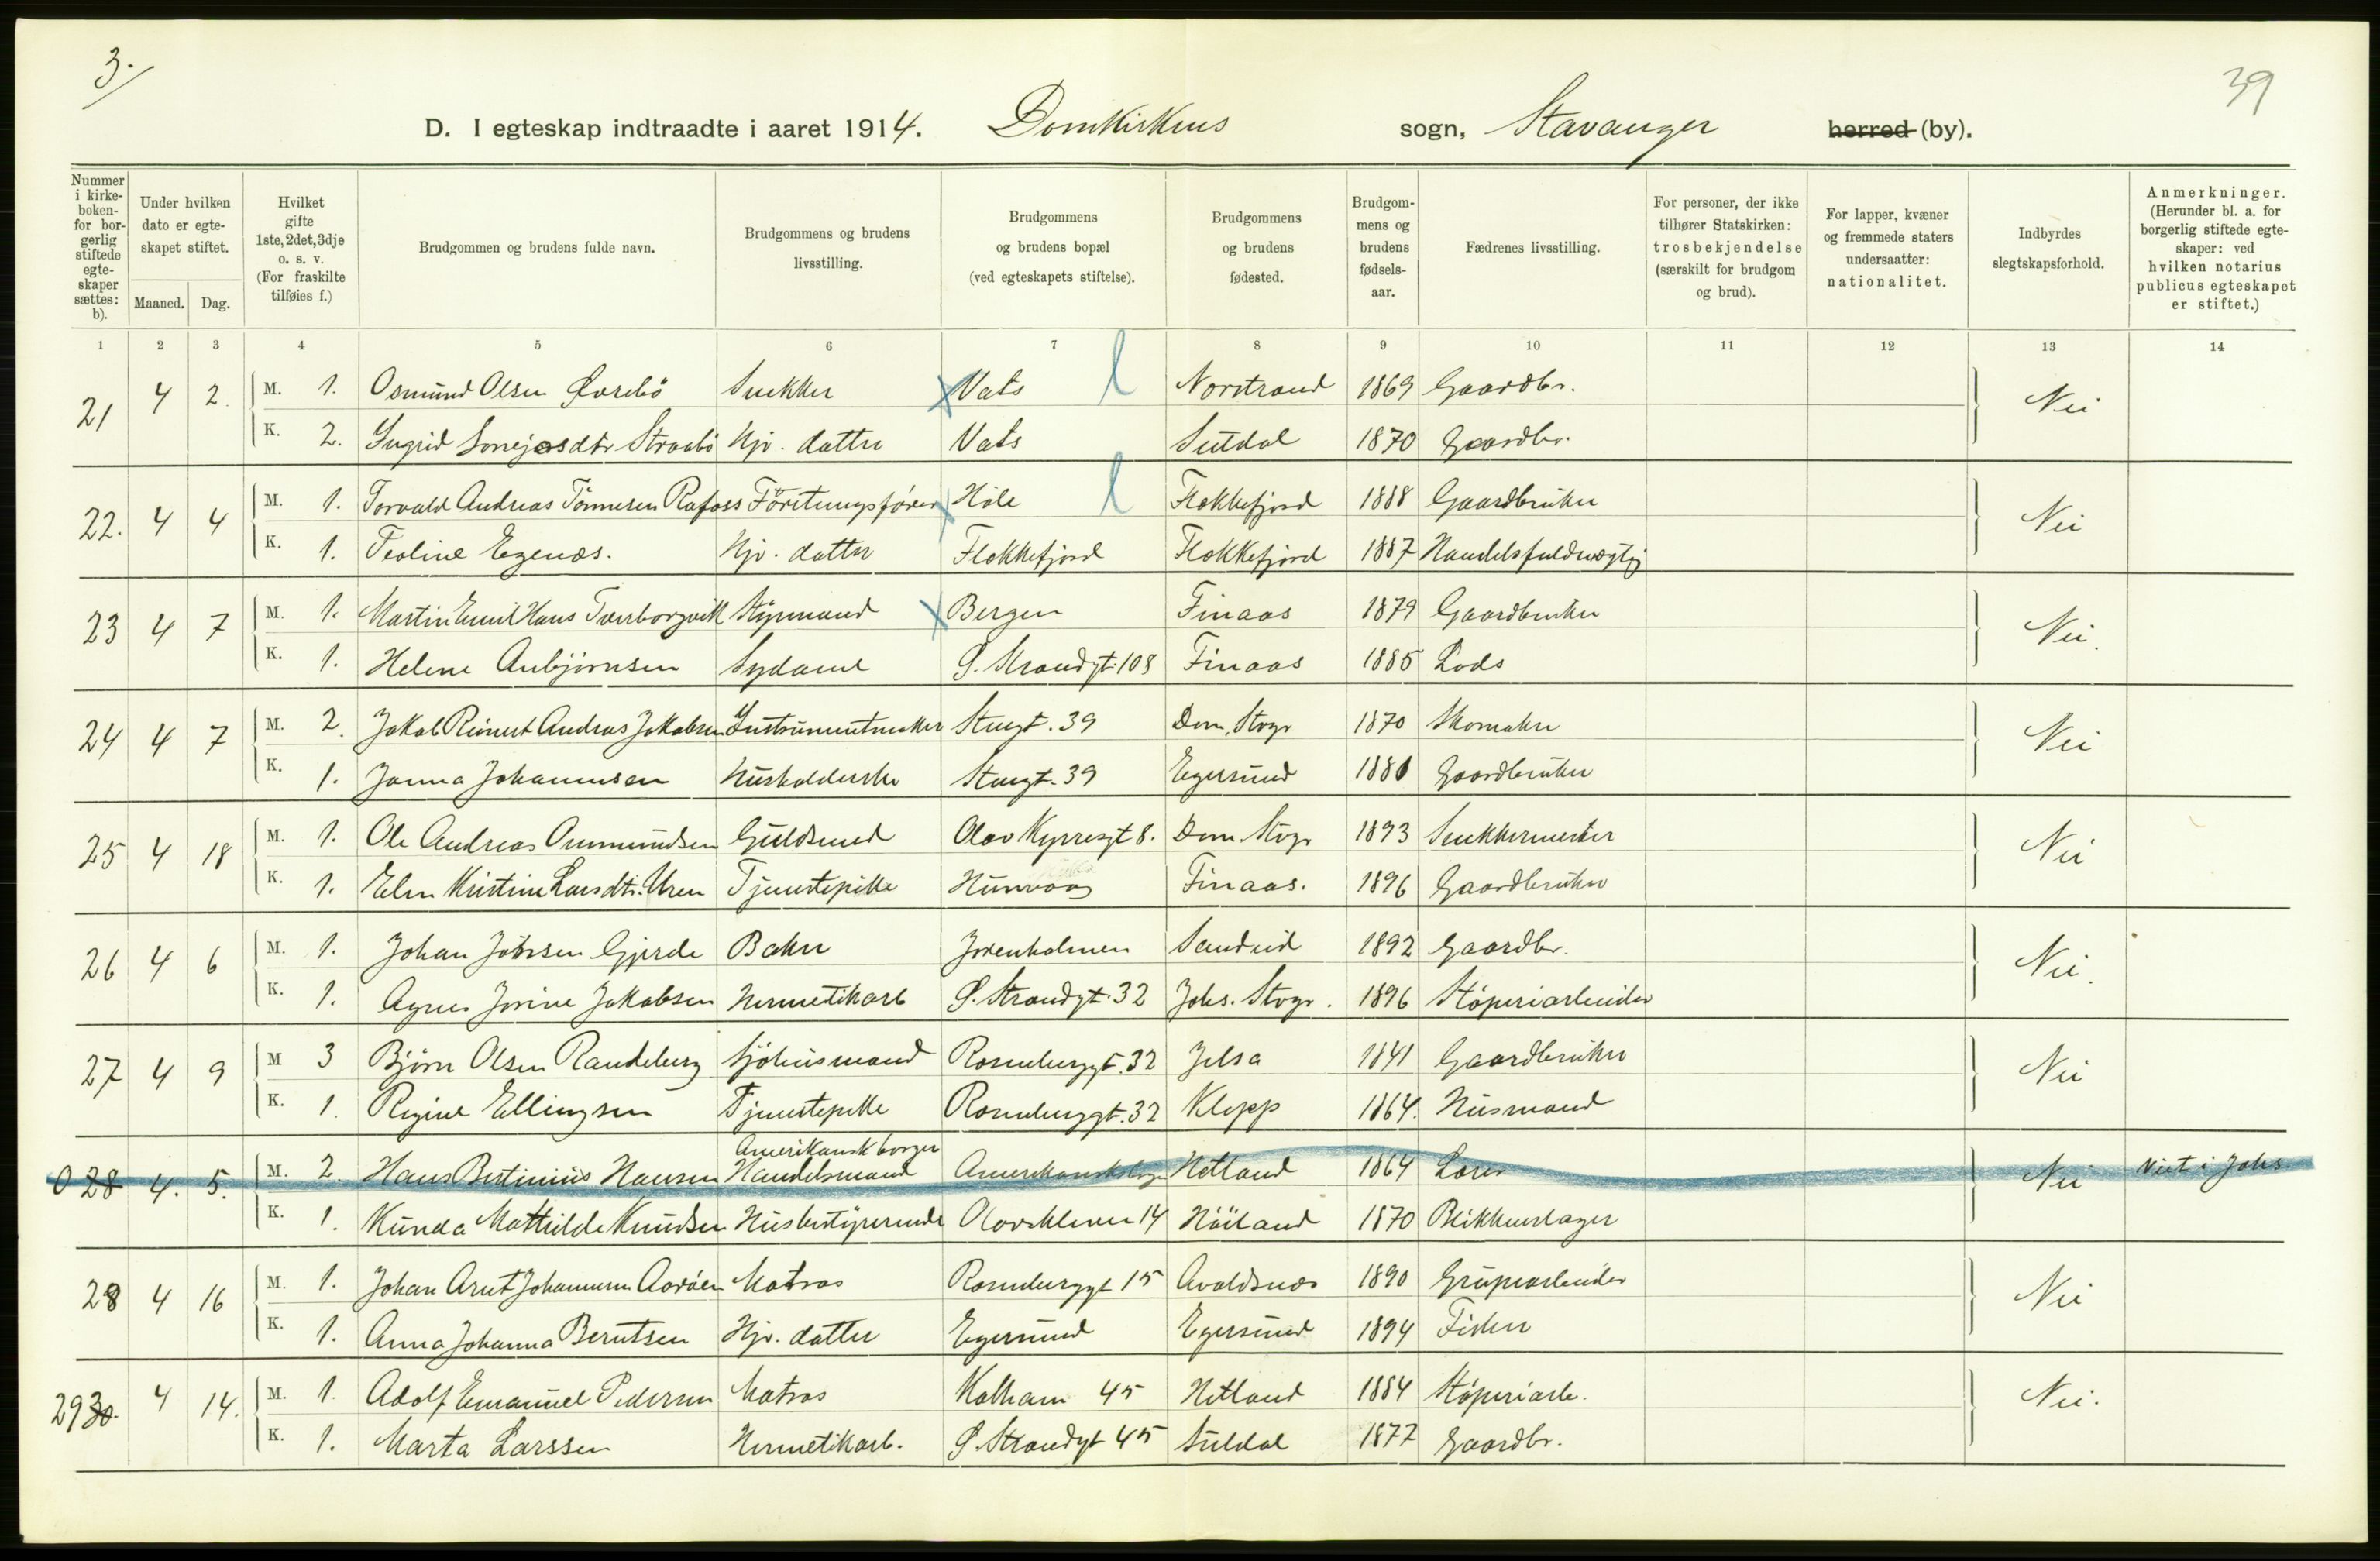 3.
39
D. I egteskap indtraadte i aaret 1914. Domkirkens sogn, Stavanger herred (by).
Nummer i kirke-boken- for bor-gerlig stiftede egte-skaper sættes: b).
Under hvilken dato er egte-skapet stiftet.
Maaned. Dag.
Hvilket gifte 1ste, 2det, 3dje o. s. v. (For fraskilte tilføies f.)
Brudgommen og brudens fulde navn.
Brudgommens og brudens livsstilling.
Brudgommens og brudens bopæl (ved egteskapets stiftelse).
Brudgommens og brudens fødested.
Brudgom-mens og brudens fødsels-aar.
Fædrenes livsstilling.
For personer, der ikke tilhører Statskirken: trosbekjendelse (særskilt for brudgom og brud).
For lapper, kvæner og fremmede staters undersaatter: nationalitet.
Indbyrdes slegtskapsforhold.
Anmerkninger. (Herunder bl. a. for borgerlig stiftede egte-skaper: ved hvilken notarius publicus egteskapet er stiftet.)
1 2 3 4 5 6 7 8 9 10 11 12 13 14
21 4 2. M. 1. Osmund Olsen Øvrebö Snekker Vats Norstrand 1869 Gaardbr. Nei
K. 2. Ingrid Straabö Hjv. datter Vats Suldal 1870 Gaardbr.
22. 4 4 M. 1. Torvald Andreas Tönnesen Rafoss Höle Flekkefjord 1888 Gaardbruker Nei
K. 1. Teoline Egenæs. Hjv. datter Flekkefjord Flekkefjord 1887 Handelsfuldmægtig
23 4 7 M. 1. Martin Emil Hans Tverborgvik Styrmand Bergen Finaas 1879 Gaardbruker Nei.
K. 1. Helene Anbjörnsen Sydame S. Strandgt. 108 Finaas 1885 Lods
24 4 7 M. 2. Jakob Reinert Andreas Jakobsen Instrumentmaker Stengt. 39 Dom, Stvgr 1870 Skomaker Nei
K. 1. Janna Johannesen Husholderske Stengt. 39 Egersund 1881 Gaardbruker
25 4 18 M. 1. Ole Andreas Ommundsen Guldsmed Olav Kyrresgt 8. Dom. Stvgr 1893 Snekkermester Nei
K. 1. Elen Kristine Larsdtr. Uren Tjenestepike Hunvaag Finaas. 1896 Gaardbruker
26 4 6 M. 1. Johan Gjerde Baker Jorenholmen Sandeid 1892 Gaardbr. Nei.
K. 1. Agnes Jorine Jakobsen Hermetikarb S. Strandgt. 32 Johs. Stvgr. 1896 Stöperiarbeider
27 4 9 M 3 Björn Olsen Randeberg Sjöhusmand Rosenbergt. 32 Jelsa 1841 Gaardbruker Nei
K. 1. Regine Ellingsen Tjenestepike Rosenberggt. 32 Klepp 1864. Husmand
0 28 4. 5. M. 2. Hans Bertinius Hansen Amerikansk borger Handelsmand Hetland 1864 Lærer Nei Viet i Johs.
K. 1. Kunda Mathilde Knudsen Husbestyrerinde Olavskleven 14 Höiland 1870 Blikkenslager
28 4 16 M. 1. Johan Arnt Johannesen Matros Rosenberggt 15 Avaldsnes 1890 Grupearbeider Nei
K. 1. Anna Johanna Berntsen Hjv. datter Egersund Egersund 1894 Fisker
29 30. 4 14. M. 1. Adolf Emanuel Pedersen Matros Kalham 45 Hetland 1884 Stöperiarb. Nei.
K. 1. Marta Larssen Hermetikarb. S. Strandgt 45 Suldal 1877 Gaardbr.